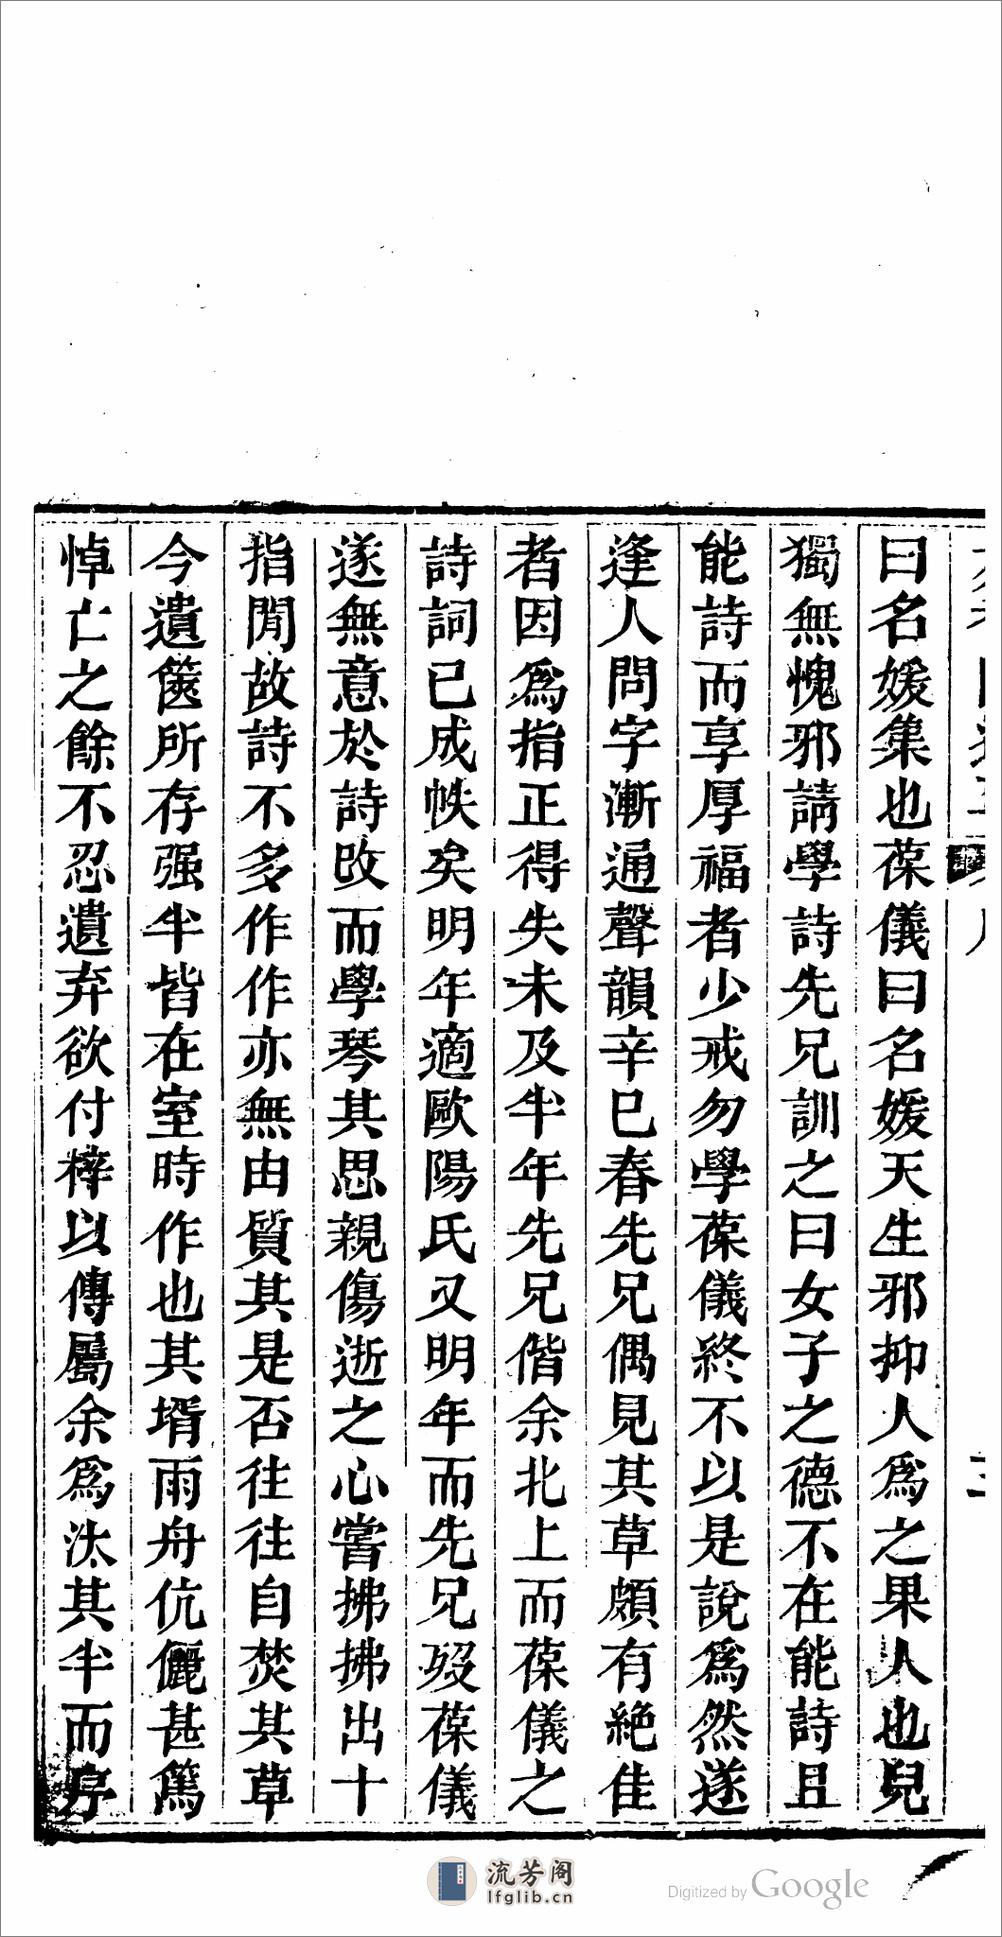 曰名媛集也葆儀曰名媛天生邪抑人爲之果人也兒
獨無愧邪請學詩先兄訓之曰女子之德不在能詩且
能詩而享厚福者少戒勿學葆儀終不以是說爲然遂
逢人問字漸通聲韻辛巳春先兄偶見其草頗有絶佳
者因爲指正得失未及半年先兄偕余北上而葆儀之
詩詞已成帙矣明年適歐陽氏又明年而先兄歿葆儀
遂無意於詩改而學琴其思親傷逝之心嘗拂拂出十
指閒故詩不多作作亦無由質其是否往往自焚其草
今遺篋所存强半皆在室時作也其壻雨舟伉儷甚篤
悼亡之餘不忍遺弃欲付梓以傳屬余爲汰其半而序
流芳阁
lfglib.cn
Digitized by Google